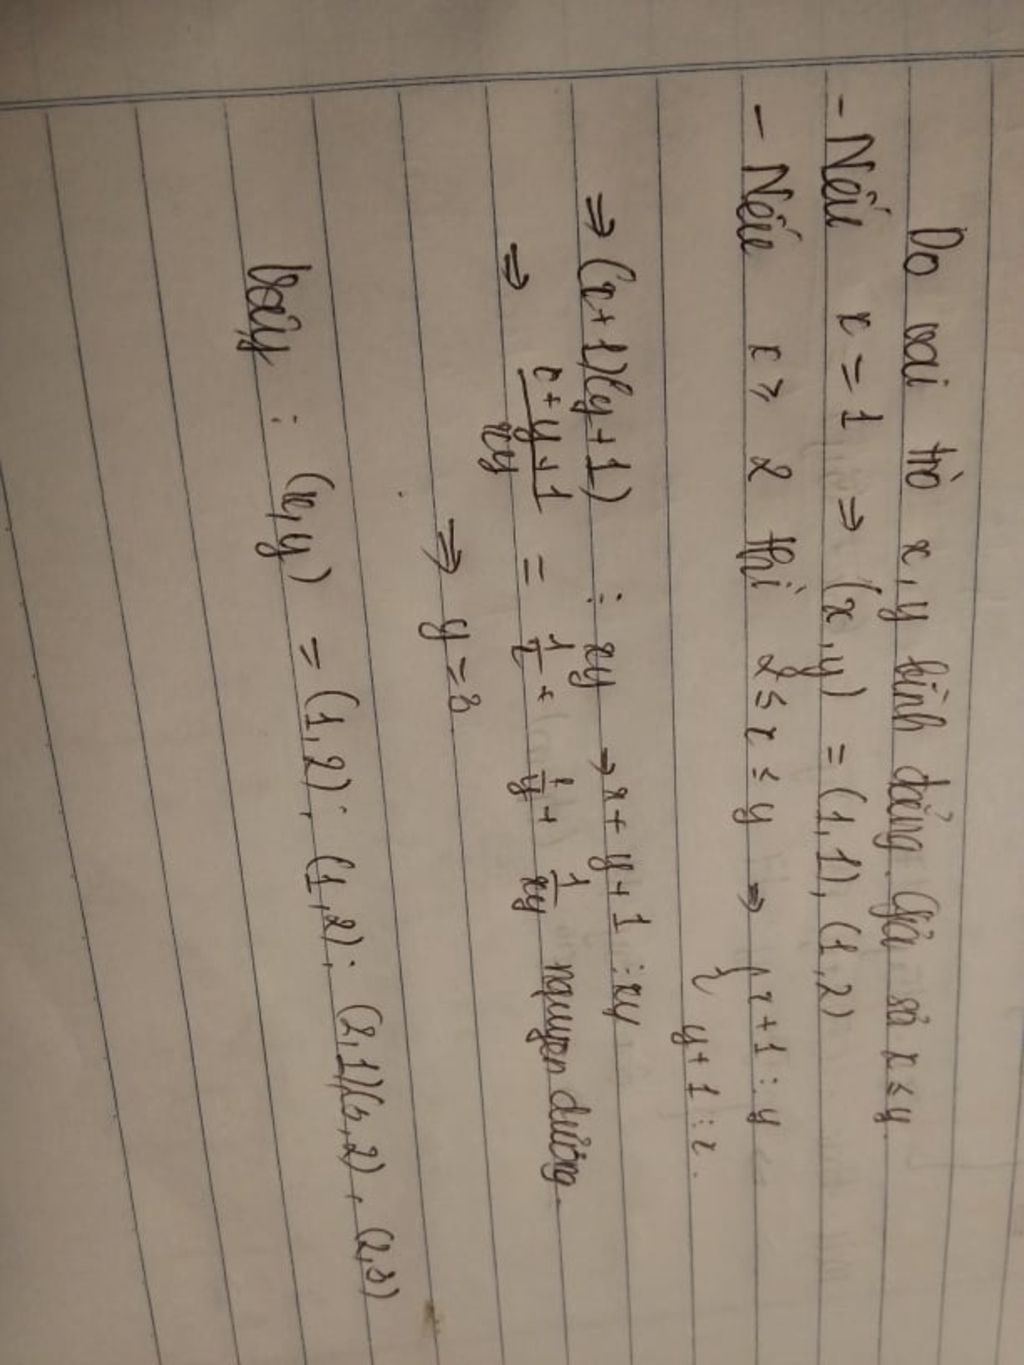 Do vai trò x, y bình đẳng. Giả sử x ≤ y.
- Nếu x = 1 ⇒ (x, y) = (1, 1), (1, 2)
- Nếu x ≥ 2 thì 2 ≤ x ≤ y ⇒ { x + 1 ⋮ y
y + 1 ⋮ x.
⇒ (x + 1)(y + 1) ⋮ xy → x + y + 1 ⋮ xy
⇒ x + y + 1 / xy = 1/x + 1/y + 1/xy nguyên dương.
⇒ y = 3
Vậy : (x, y) = (1, 2); (1, 2); (2, 1)(3, 2), (2, 3)